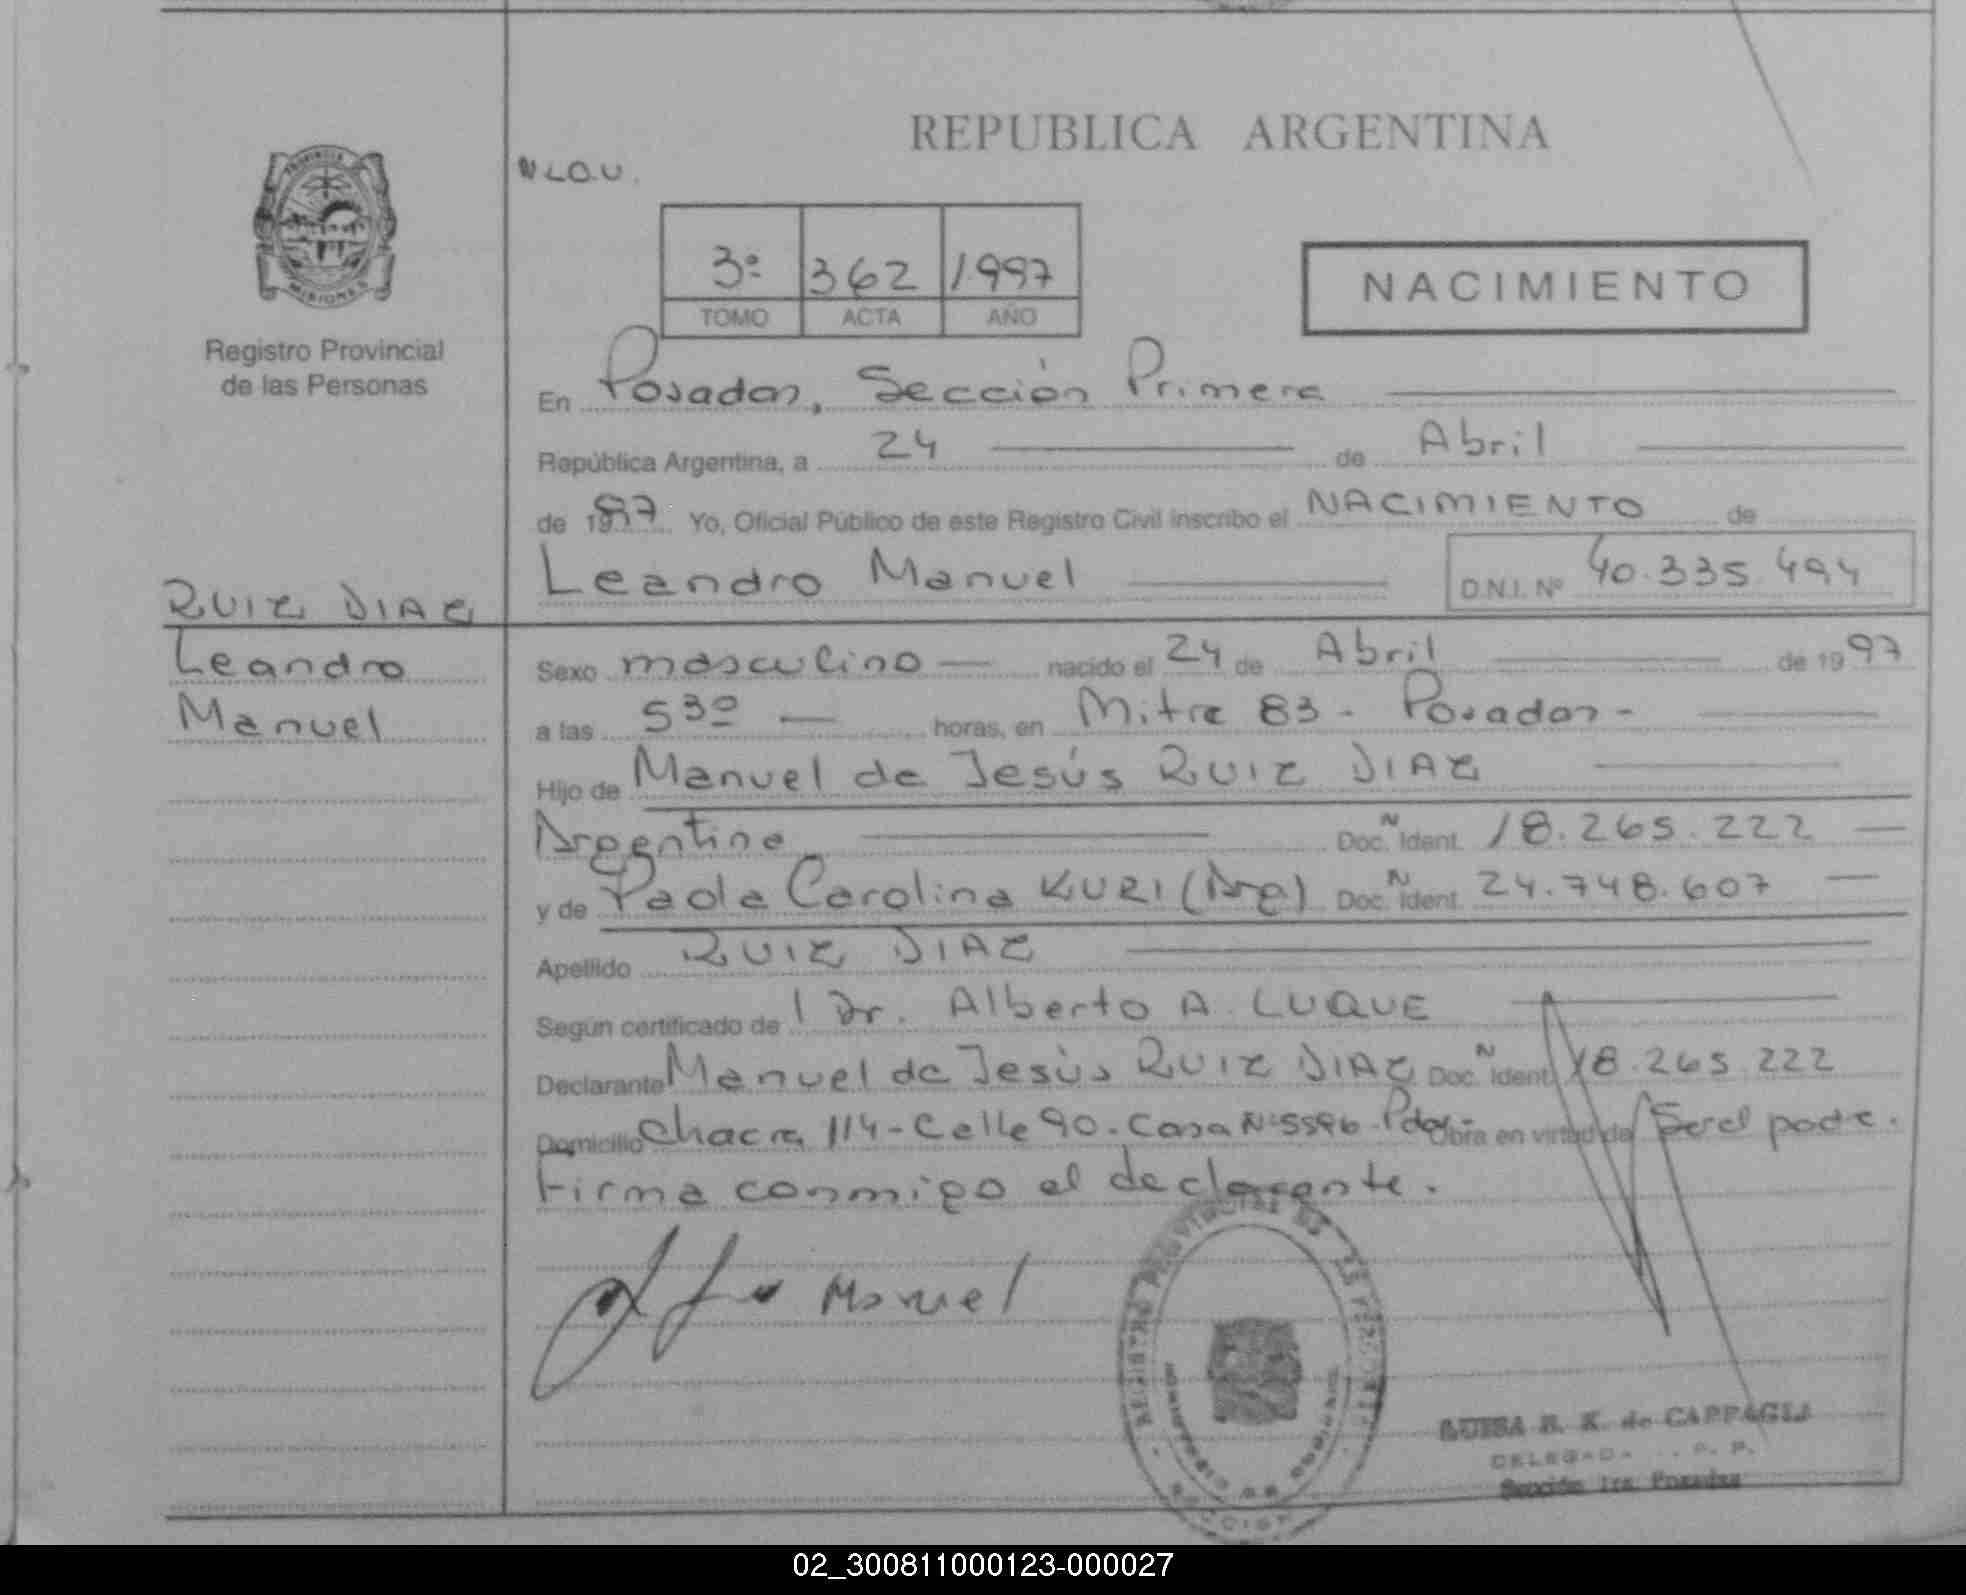 REPUBLICA ARGENTINA
N L.Q.U.
PROVINCIA
MISIONES
3º 362 1997
TOMO ACTA AÑO
NACIMIENTO
Registro Provincial
de las Personas
En Posadas, Sección Primera
República Argentina, a 24 de Abril
de 1997 Yo, Oficial Público de este Registro Civil inscribo el NACIMIENTO de
Leandro Manuel D.N.I. Nº 40.335.494
RUIZ DIAZ
Leandro
Manuel
Sexo masculino nacido el 24 de Abril de 1997
a las 5 30 horas, en Mitre 83 - Posadas -
Hijo de Manuel de Jesús RUIZ DIAZ
Argentino Doc. N Ident. 18.265.222
y de Paola Carolina KURI (Arg) Doc. N Ident. 24.748.607
Apellido RUIZ DIAZ
Según certificado de l Dr. Alberto A. LUQUE
Declarante Manuel de Jesús RUIZ DIAZ Doc. N Ident. 18.265.222
Domicilio Chacra 114 - Calle 90 - Casa Nº 5596 - Pdas - Obra en virtud de Ser el padre.
Firma conmigo el declarante.
Manuel
REGISTRO PROVINCIAL DE LAS PERSONAS
SECCION
LUISA R. K. de CAPPAGLI
DELEGADA R. P.
Sección 1ra Posadas
02_300811000123-000027